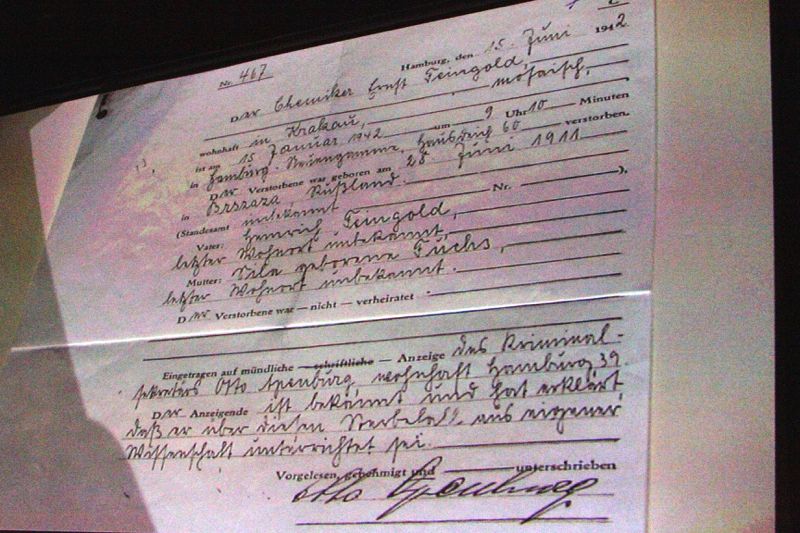 C
Nr. 467
Hamburg, den 15. Juni 1942
Der Chemiker Ernst Feingold,
mosaisch,
wohnhaft in Krakau,
ist am 15. Januar 1942 um 9 Uhr 10 Minuten
in Hamburg-Neuengamme, Hausdeich 60 verstorben.
Der Verstorbene war geboren am 28. Juni 1911
in Rußland.
(Standesamt unbekannt Nr. ).
Vater: Heinrich Feingold,
letzter Wohnort unbekannt,
Mutter: geborene Fuchs,
letzter Wohnort unbekannt.
Der Verstorbene war — nicht — verheiratet
Eingetragen auf mündliche — schriftliche — Anzeige des Kriminal-
sekretärs Otto Apenburg, wohnhaft Hamburg 39
Der Anzeigende ist bekannt und hat erklärt
daß er über diesen Sterbefall aus eigener
Wissenschaft unterrichtet sei.
Vorgelesen, genehmigt und unterschrieben
Otto Apenburg